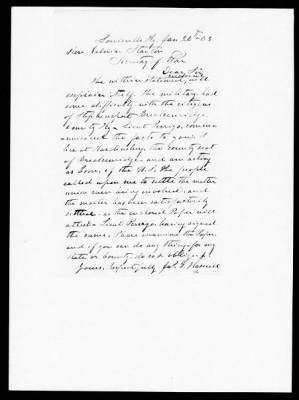 Louisville Ky, Jan 26th 63
Hon Edwin Stanton
Secretary of War
Dear Sir
The within Statement, will
explain itself. The military had
some difficulty with the citizens
of Stephensport Breckenridge
County Ky & Lieut Perrigo, commu
nicates the facts to you. I
live at Hardinsburg, the County seat
of Breckenridge, and am acting
as Com, of the U.S. the people
called upon me to settle the matter
union men being involved, and
the matter has been satisfactorily
settled, as the enclosed Paper will
attest & Lieut Perrigo, having signed
the same. Please examine the Paper,
and if you can do any thing, for my
state or County, do so & oblige
Yours, Respectfully Jos.